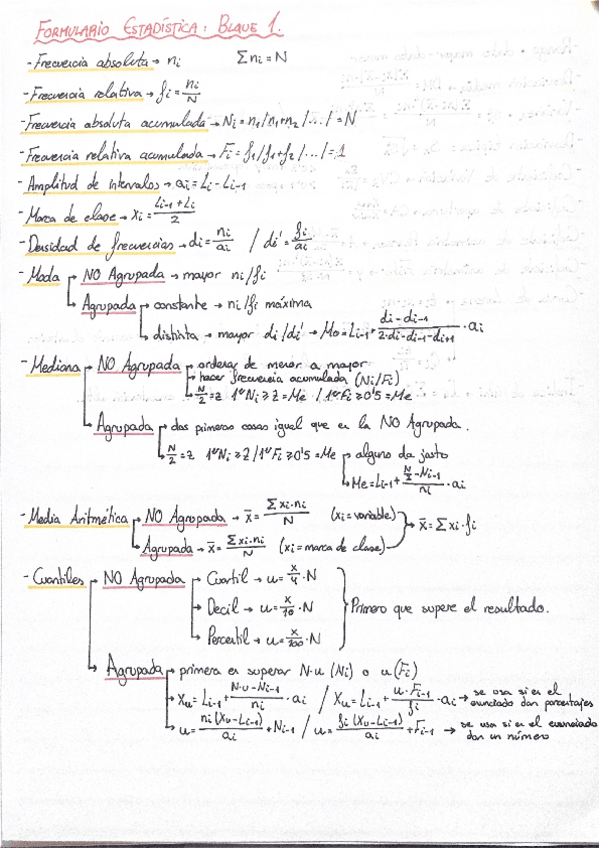 FORMULARIO ESTADÍSTICA: BLOQUE 1.
- Frecuencia absoluta → ni   Σni = N
- Frecuencia relativa → fi = ni/N
- Frecuencia absoluta acumulada → Ni = n1 / n1+n2 / ... / = N
- Frecuencia relativa acumulada → Fi = f1 / f1+f2 / ... / = 1
- Amplitud de intervalos → ai = Li - Li-1
- Marca de clase → xi = (Li-1 + Li)/2
- Densidad de frecuencias → di = ni/ai / di' = fi/ai
- Moda → NO Agrupada → mayor ni/fi
Agrupada → constante → ni/fi máxima
distinta → mayor di/di' → Mo = Li-1 + (di - di-1)/(2·di - di-1 - di+1) · ai
- Mediana → NO Agrupada → ordenar de menor a mayor
→ hacer frecuencia acumulada (Ni/Fi)
→ N/2 = z 1º Ni ≥ z = Me / 1º Fi ≥ 0'5 = Me
Agrupada → dos primeros casos igual que en la NO Agrupada.
N/2 = z 1º Ni ≥ z / 1º Fi ≥ 0'5 = Me → alguno da justo
→ Me = Li-1 + (N/2 - Ni-1)/ni · ai
- Media Aritmética → NO Agrupada → x̄ = Σxi·ni/N (xi = variable)
→ x̄ = Σxi·fi
Agrupada → x̄ = Σxi·ni/N (xi = marca de clase)
- Cuantiles → NO Agrupada → Cuartil → u = x/4 · N
→ Decil → u = x/10 · N } Primero que supere el resultado.
→ Percentil → u = x/100 · N
Agrupada → primera en superar N·u (Ni) o u (Fi)
→ Xu = Li-1 + (N·u - Ni-1)/ni · ai / Xu = Li-1 + (u - Fi-1)/fi · ai → se usa si en el enunciado dan porcentajes
→ u = ni(Xu - Li-1)/ai + Ni-1 / u = fi(Xu - Li-1)/ai + Fi-1 → se usa si en el enunciado dan un número